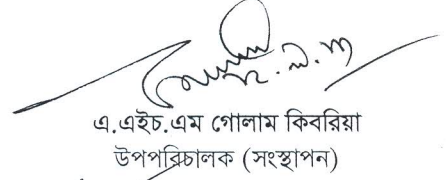 এ.এইচ.এম গোলাম কিবরিয়া
উপপরিচালক (সংস্থাপন)